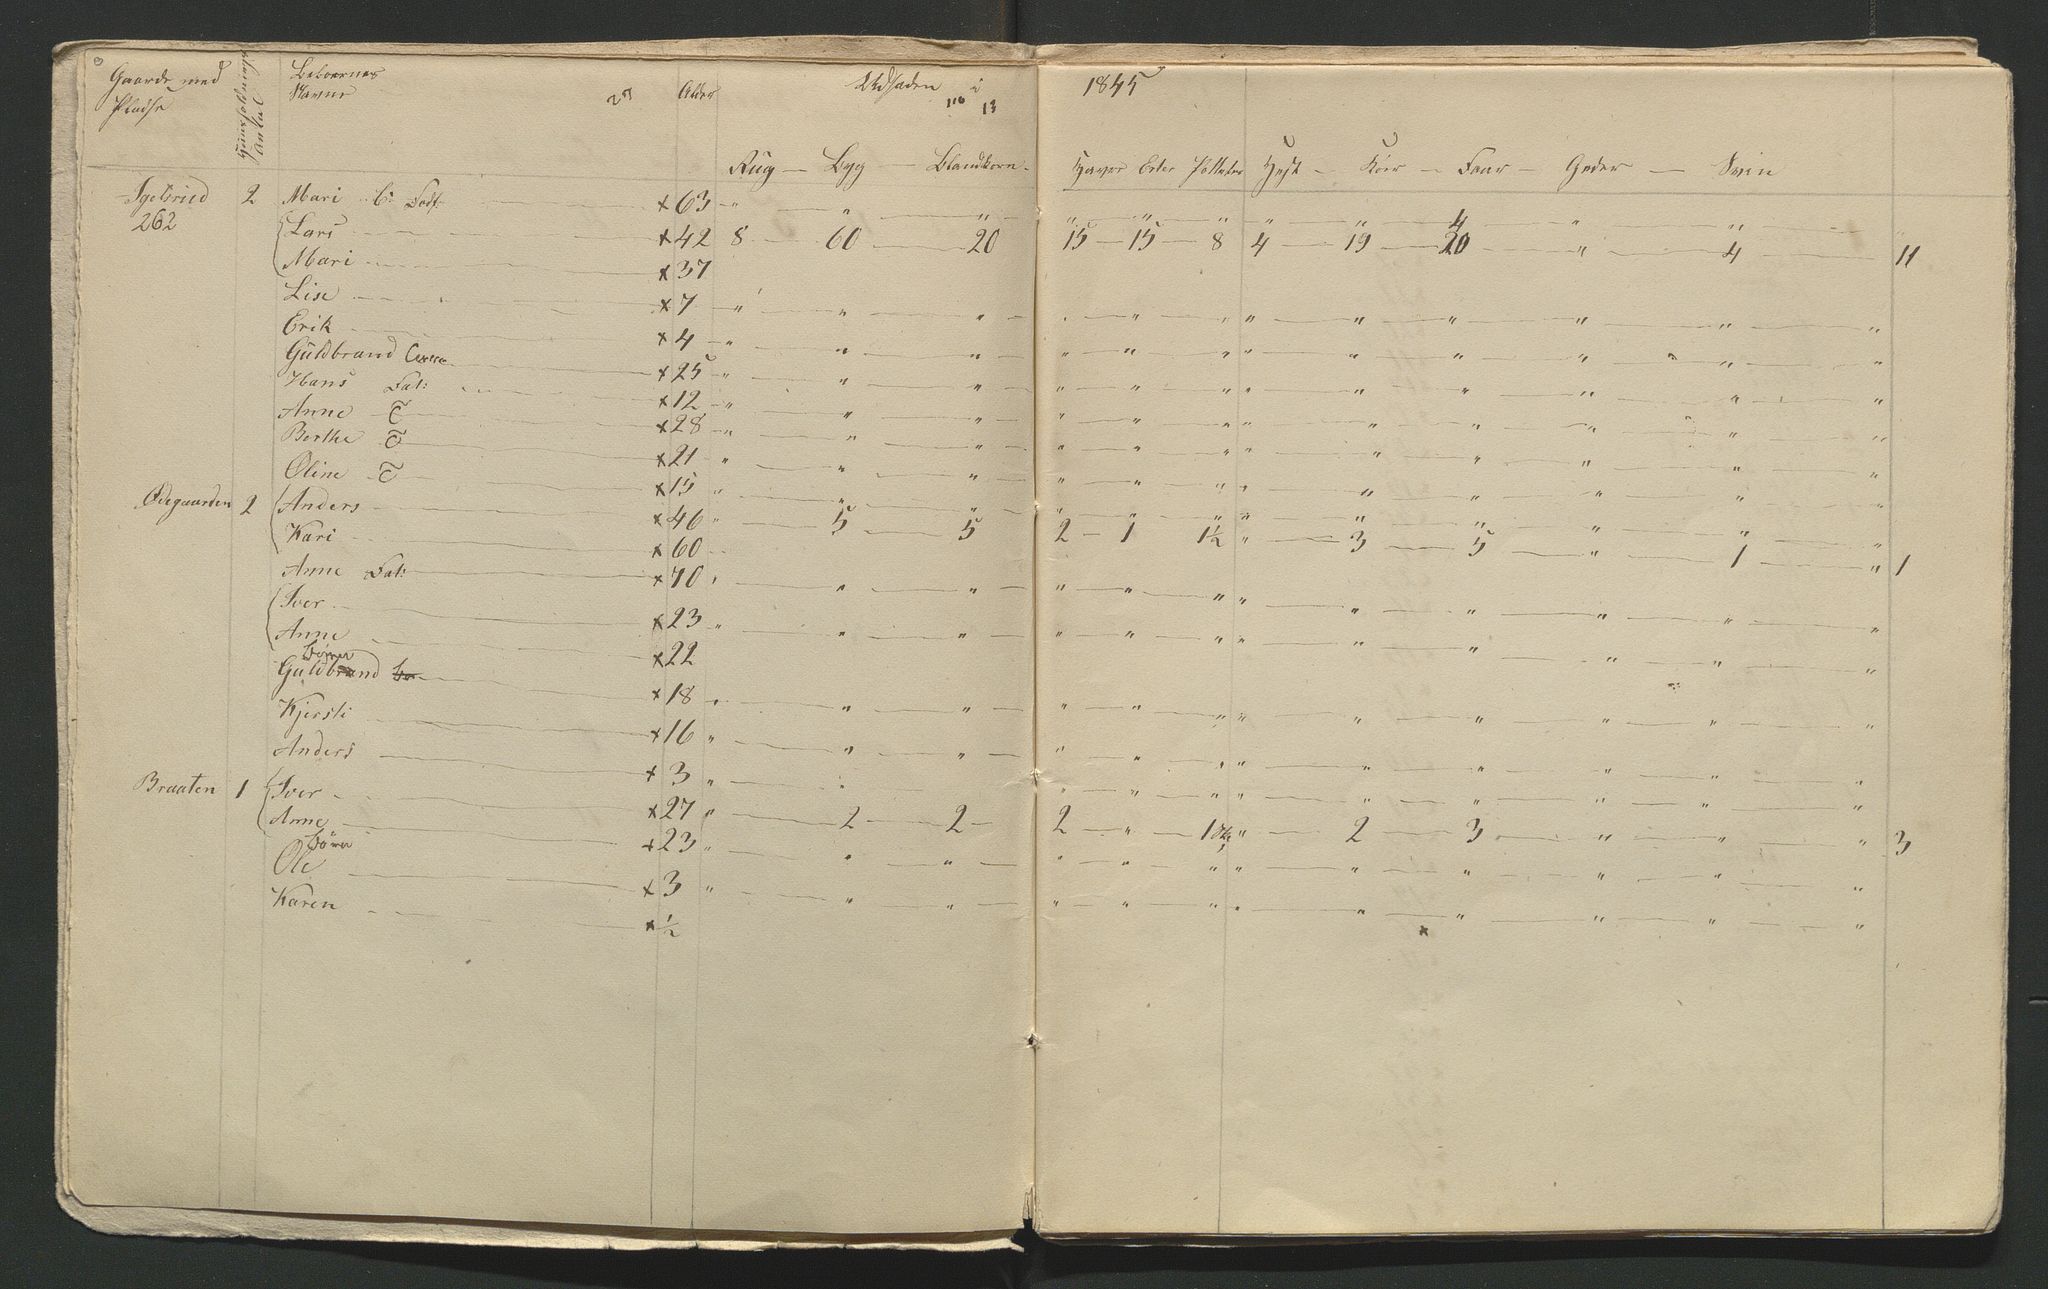 Gaarde med Pladse Huusholdnings Antal Beboernes Navne Alder Udsæden i 1845
Rug — Byg — Blandkorn — Havre Erter Potteter Hest — Kiør — Faar — Geder — Sviin
2 Mari 63 " " " " " " " " 4 " "
262 Lars 42 8 60 20 15 15 8 4 19 20 " 4 11
Mari 37
Lise 7 " " " " " " " " " " "
Erik 4 " " " " " " " " " " "
Guldbrand 25 " " " " " " " " " " "
Hans Fat: 12 " " " " " " " " " " "
Anne T 28 " " " " " " " " " " "
Berthe T 21 " " " " " " " " " " "
Oline T 15 " " " " " " " " " " "
Ødegaarden 2 Anders 46 " 5 5 2 1 1½ " 3 5 " 1 " 1
Kari 60
Anne Fat: 70 " " " " " " " " " " "
Iver 23 " " " " " " " " " " "
Anne 22
Børn
Guldbrand 18 " " " " " " " " " " "
Kjersti 16 " " " " " " " " " " "
Anders 3 " " " " " " " " " " "
Braaten 1 Iver 27 " 2 2 2 " 1 " 2 3 " " " 3
Anne 23 " " " " " " " " " " "
Børn
Ole 3 " " " " " " " " " " "
Karen ½